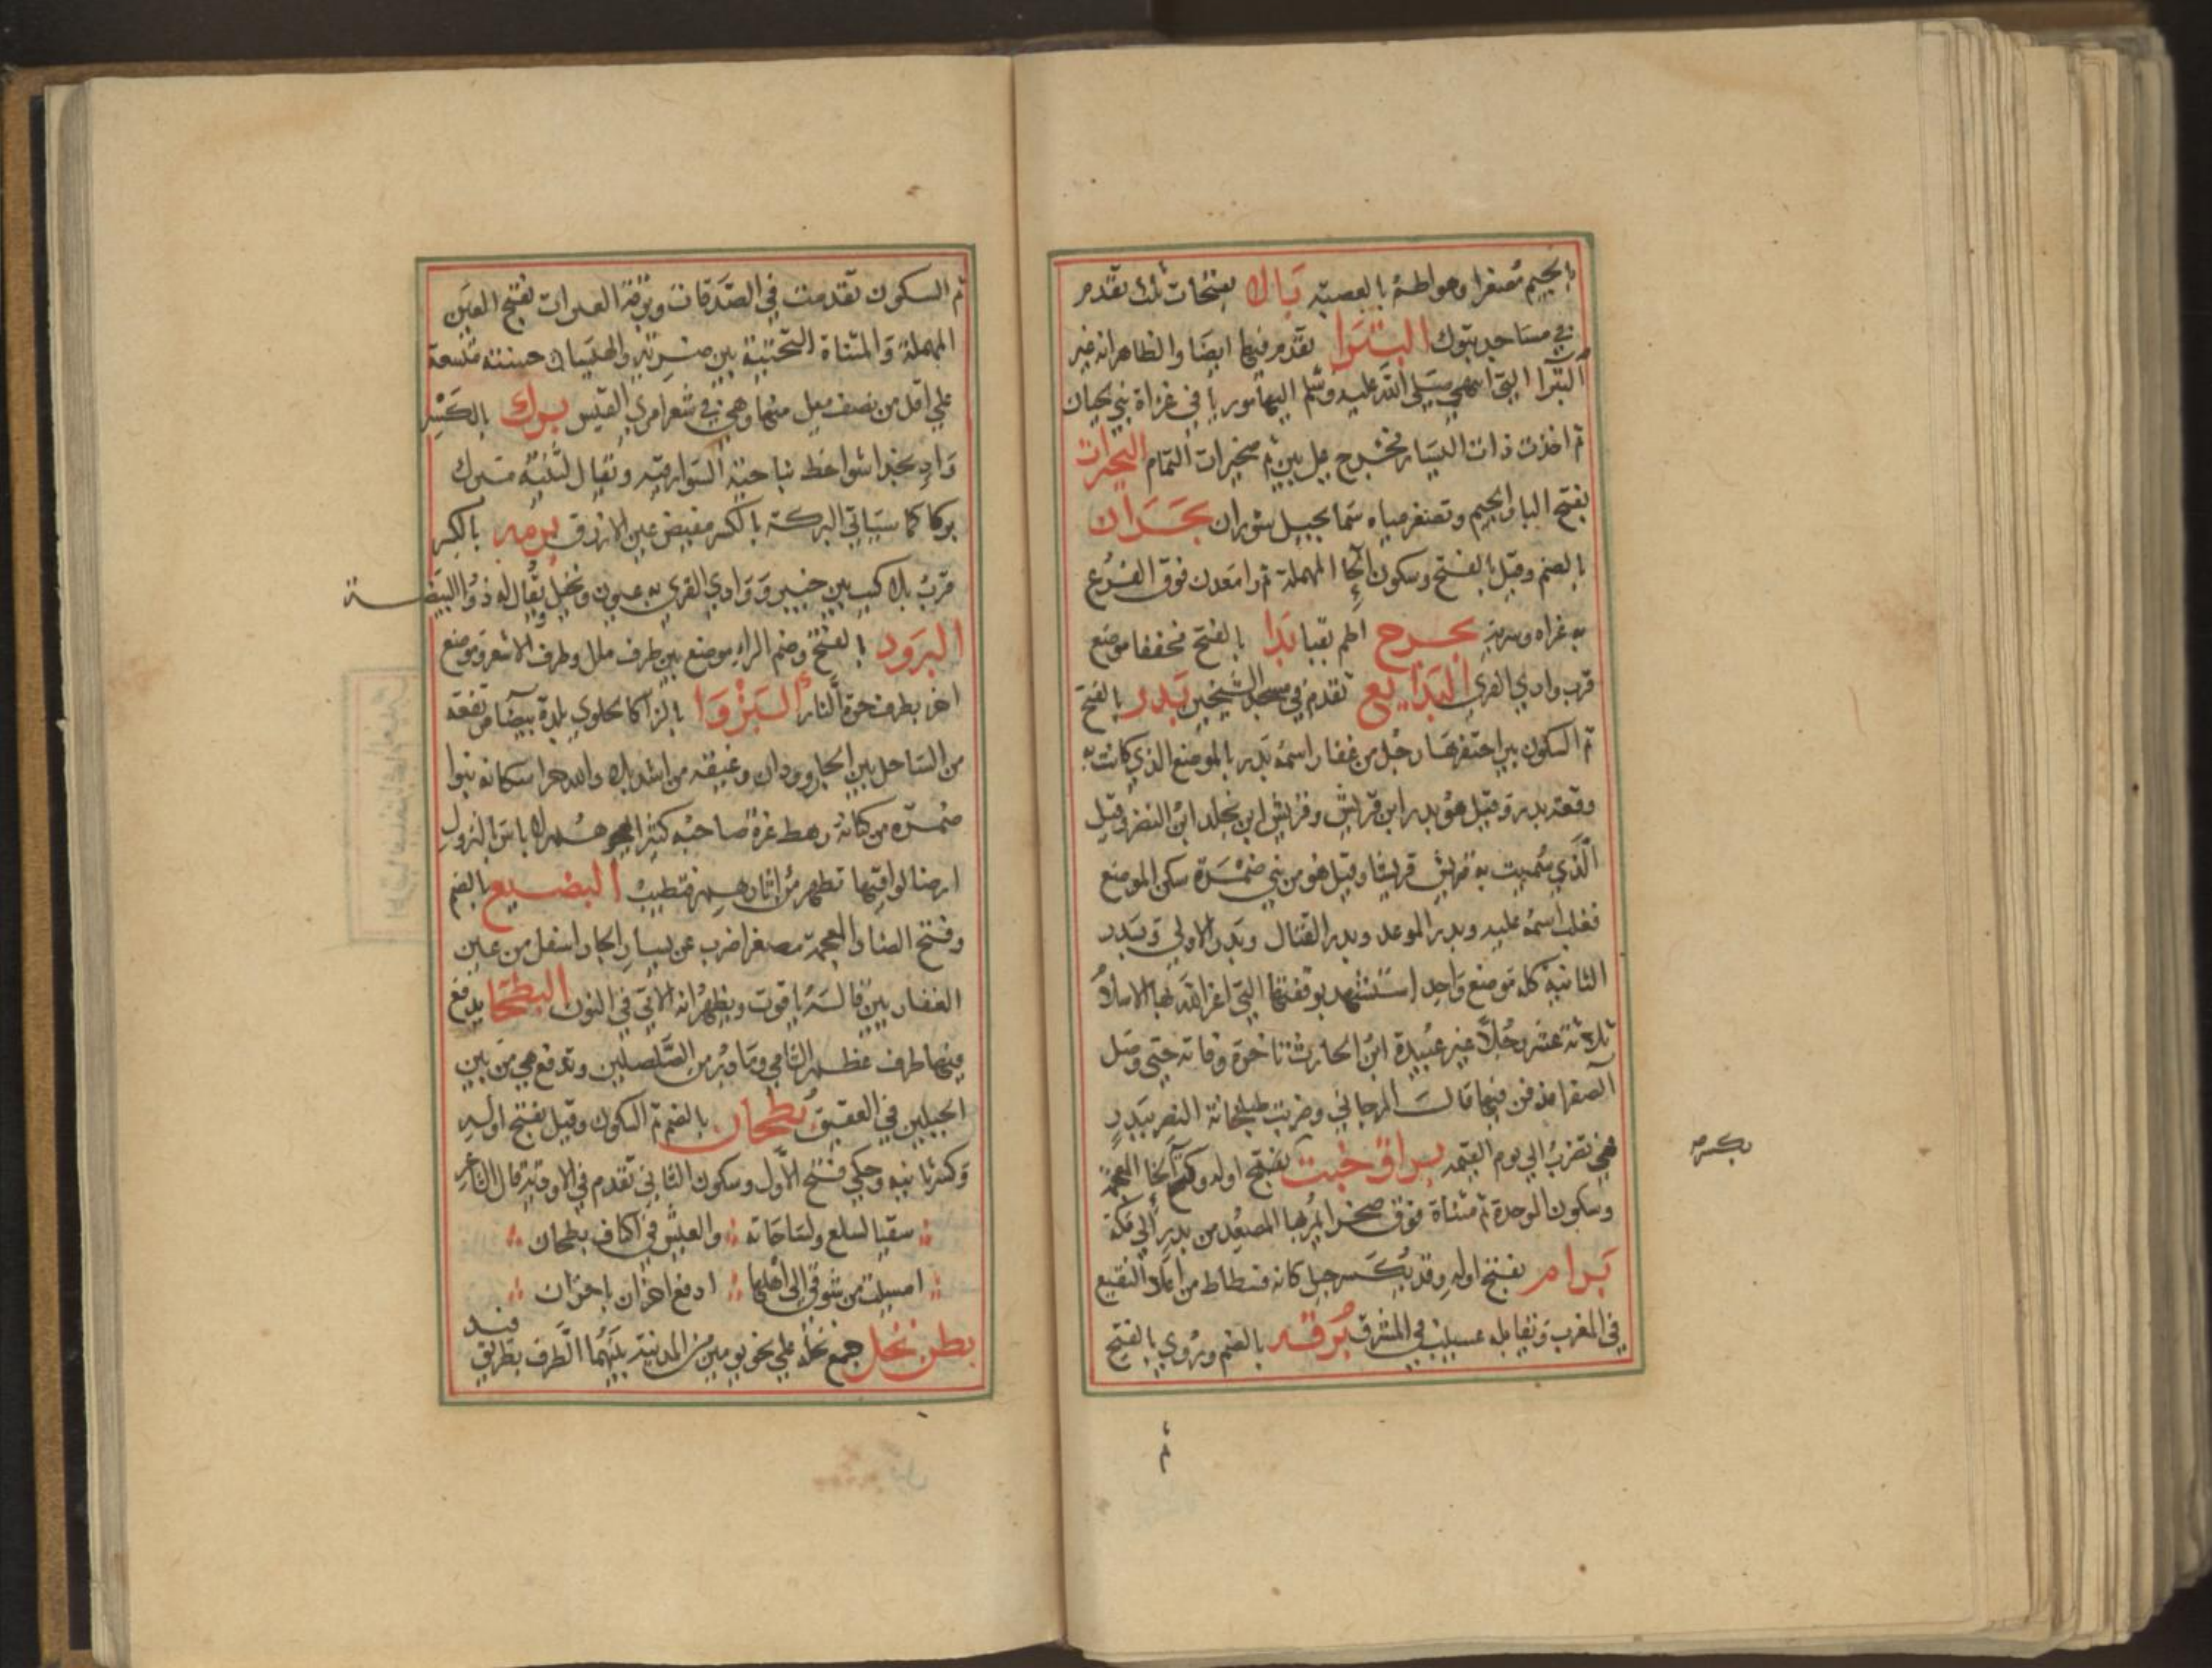 بالجيم مصغرا وهو اطم بالعصبة بتراء بفتحات ثلث تقدم
في مساجد تبوك البتراء تقدم فيها ايضا والظاهر انه غير
البترا التي انتهي صلى الله عليه وسلم اليها موريا في غزاة بني لحيان
ثم اخذ ذات اليسار فخرج علي بين ثم صخيرات الثمام البجرات
بفتح البا والجيم وتصغر مياه سما بجبل شوران بحران
بالضم وقيل بالفتح وسكون الحا المهملة ثم را معدن فوق الفرع
به غزاه وسرية بحرج اطم بقبا بدا بالفتح مخففا موضع
قرب وادي القرى البدايع تقدم في مسجد الشيخين بدر بالفتح
ثم السكون بير احتفرها رجل من غفار اسمه بدر بالموضع الذي كانت به
وقعة بدر وقيل هو بدر ابن قريش وقريش ابن يخلد ابن النضر وقيل
الذي سميت به قريش قريشا وقيل هو من بني ضمرة سكن الموضع
فغلب اسمه عليه وبدر الموعد وبدر القتال وبدر الاولي وبدر
الثانية كله موضع واحد استشهد بوقعتها التي اعز الله بها الاسلام
ثلاثة عشر رجلا غير عبيدة ابن الحارث تاخرة وفاته حتى وصل
الصفرا فدفن فيها قال المرجاني وضربت طبلخانة النصر ببدر
فهي تضرب الي يوم القيمة براق خبت بفتح اوله وكسر الخا المعجمة
بكسر
وسكون الموحدة ثم مثناة فوق صخرا يمر بها المصعد من بدر الي مكة
برام بفتح اوله وقد يكسر جبل كانه فسطاط من اعلا النقيع
في المغرب ويقابله عسيب في المشرق برقه بالضم وروي بالفتح
ثم
ثم السكون تقدمت في الصدقات وبرقة العيرات بفتح العين
المهملة والمثناة التحتية بين ضرية والهليان حسنة متسعة
علي اقل من نصف ميل منها وهي في شعر امري القيس برك بالكسر
واد بحذا شواحط بناحية السوارقية ويقال لثنية مبرك
بركا كما سياتي البركة بالكسر مغيض عين الازرق برمه بالكسر
قرب بلاكيب بين خيبر ووادي القري به عيون ونخيل يقال له ذو البيضة
البرود بالفتح وضم الراء موضع بين طرف ملل وطرف الاشعر وموضع
اخر بطرف حرة النار البزوا بالزا كالحلوي بلدة بيضا مرتفعة
من الساحل بين الجار وودان وغيقه من اشد بلاد الله حرا سكانه بنوا
ضمرة من كنانة رهط عزة صاحبه كثير
ارضا لواقيها تطهر من اثارهم فتطيب البضيع بالضم
وفتح الضاد المعجمة مصغرا ضرب عن يسار الجار اسفل من عين
الغفاريين قاله ياقوت ويظهر انه الاتي في النون البطحا يدفع
فيها طرف عظم الشامي وما دبر من الصلصلين وتدفع هي من بين
الجبلين في العقيق بطحان بالضم ثم السكون وقيل بفتح اوله
وكسر ثانيه وحكي فتح الاول وسكون الثاني تقدم في الاودية قال الشاعر
سقيا لسلع ولساحاته والعيش في اكناف بطحان
امسيت من شوقي الى اهلها ادفع احزان باحزان
بطن نخل جمع نخلة علي نحو يومين من المدينة بينهما الطرف بطريق
فيد